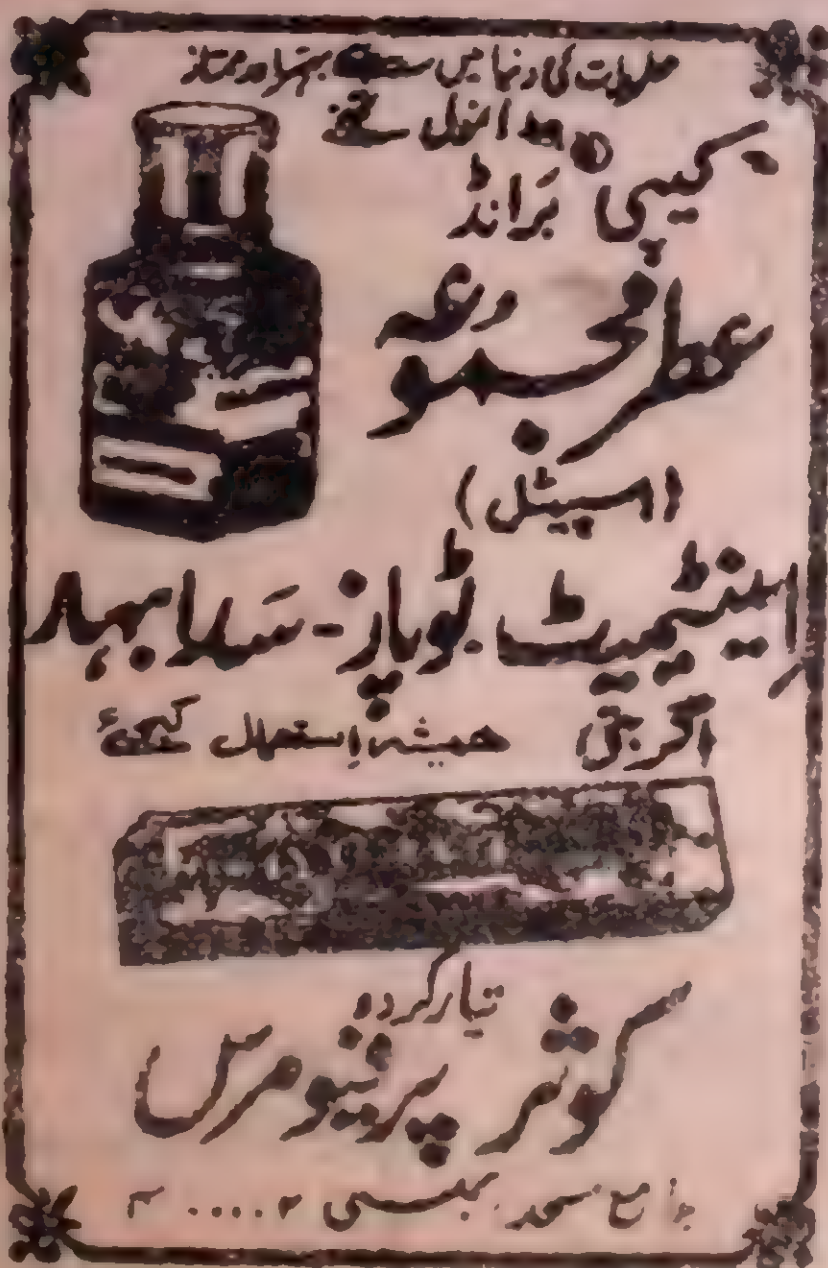 عطریات کی دنیا میں سب سے بہتر اور ممتاز
اور انمول تحفے
کیپی برانڈ
عطر مجموعہ
(اسپیشل)
اینٹیمیٹ ٹوپاز - سدا بہار
اگربتی ہمیشہ استعمال کیجئے
تیار کردہ
کوثر پرفیومرس
جامع مسجد بمبئی